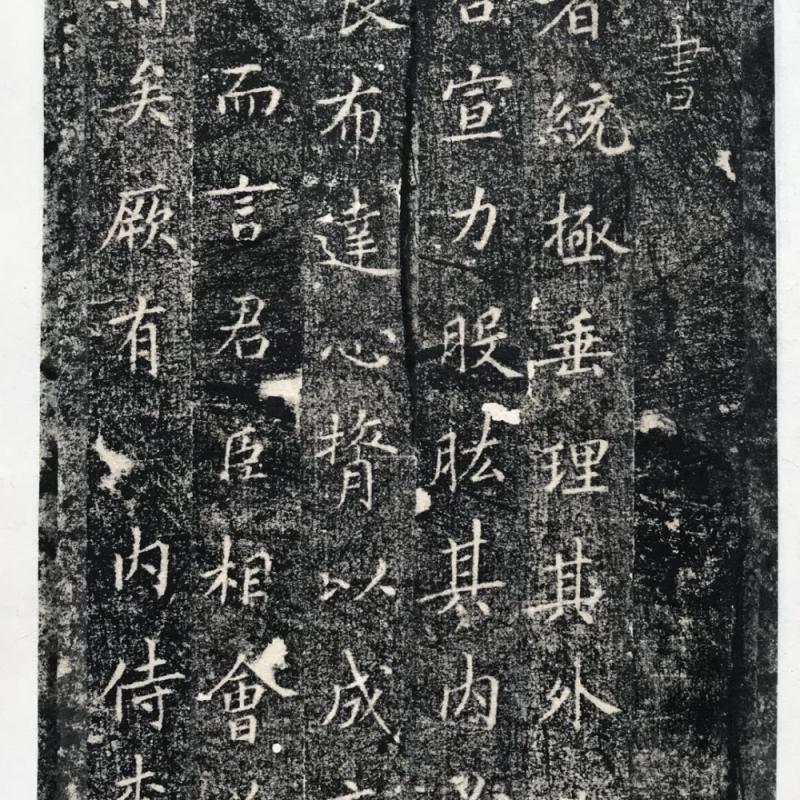 書
者統極垂理其外
宣力股肱其内
良布達心膂以成
而言君臣相會
矣厥有内侍李